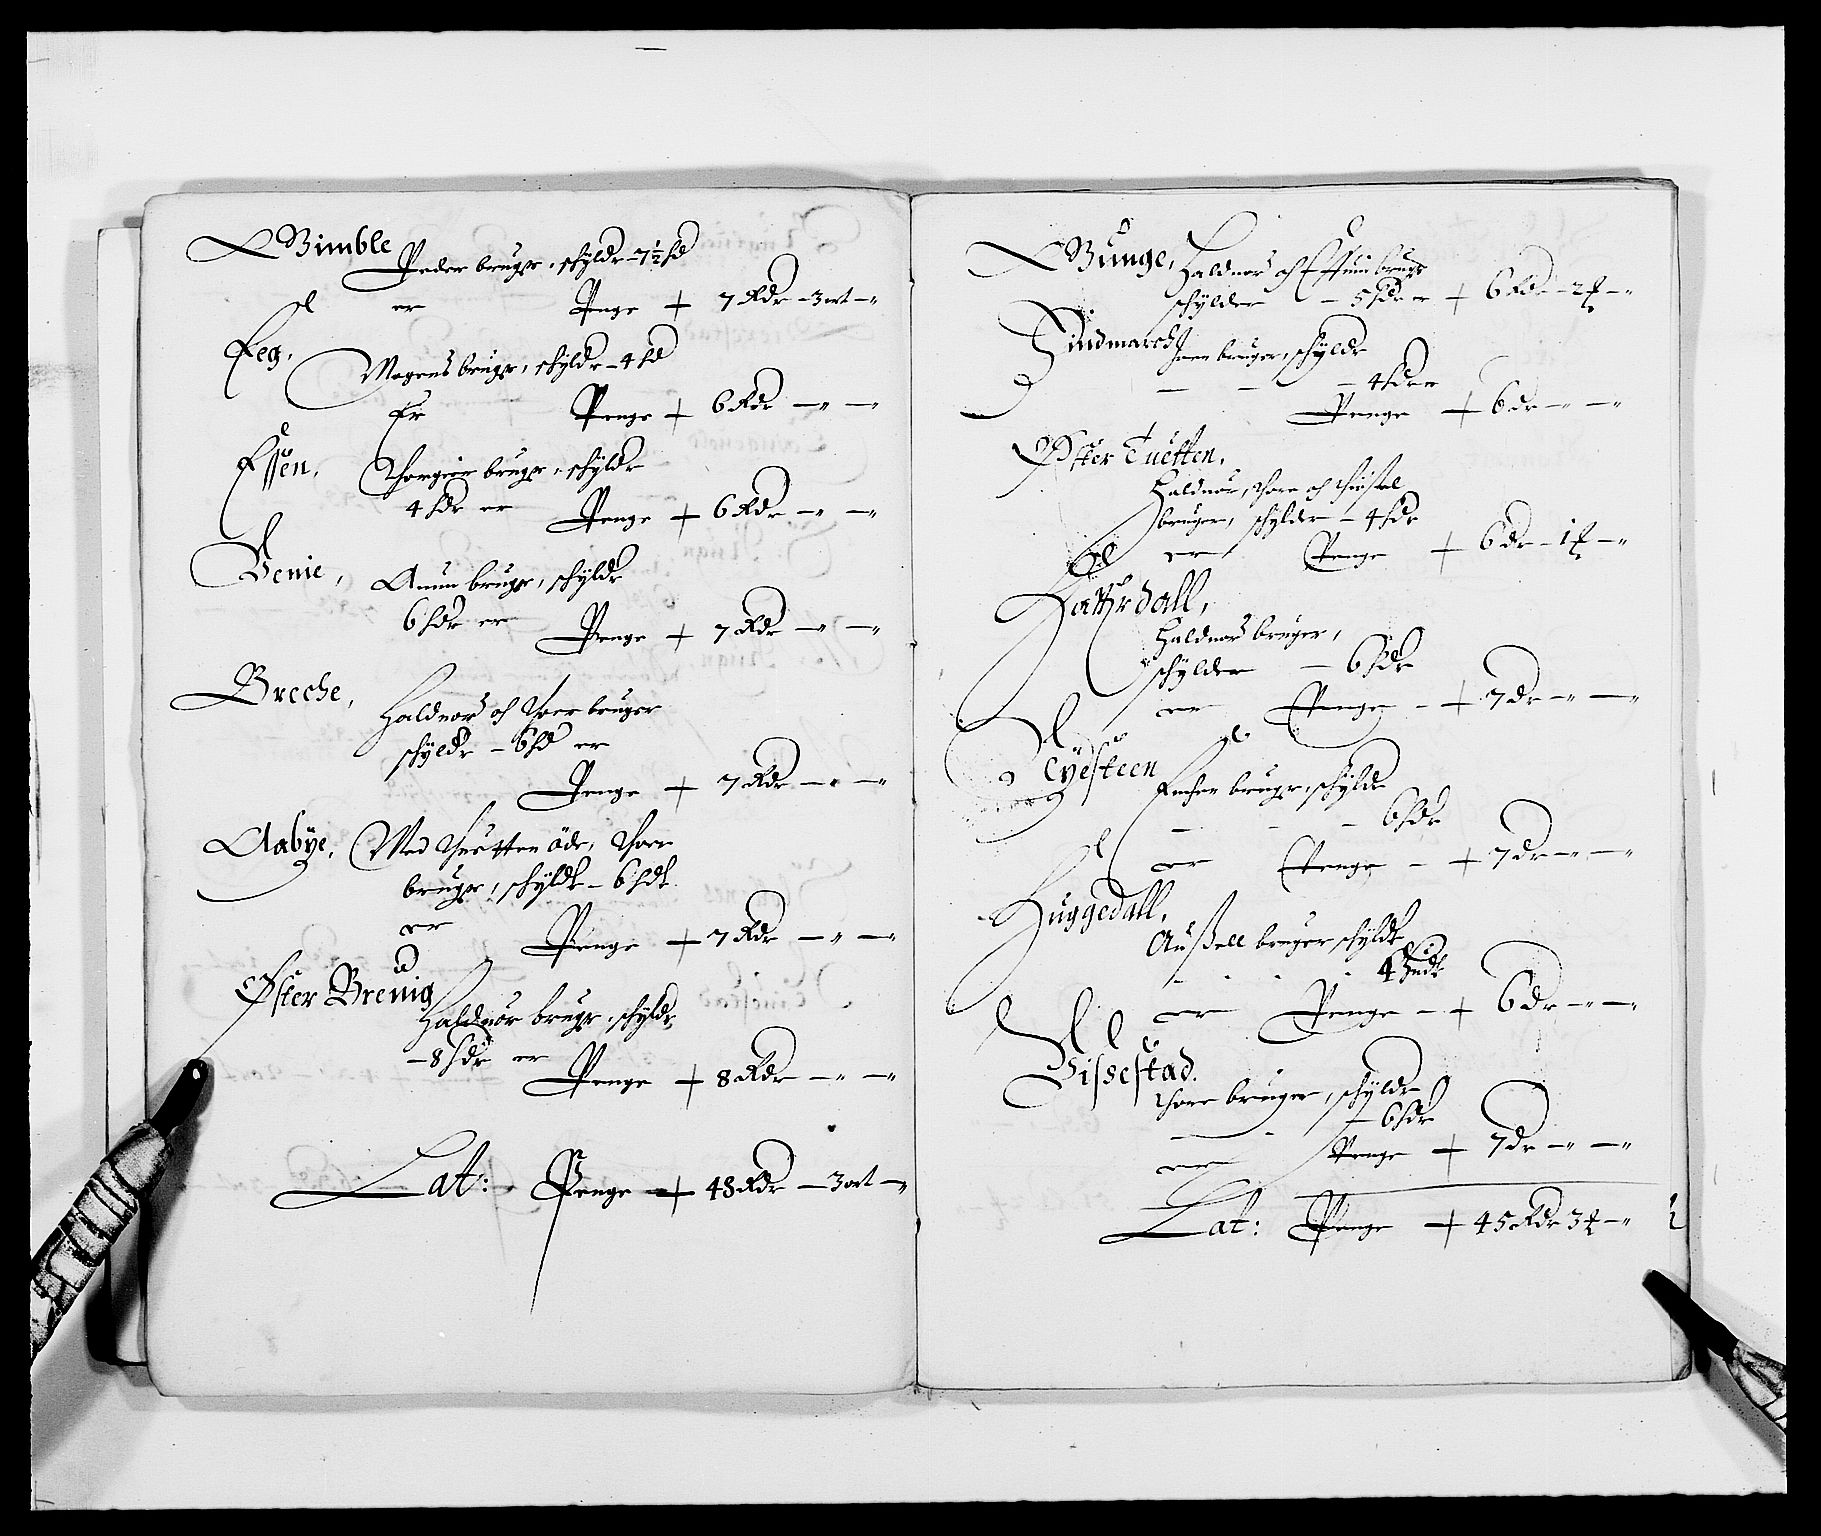 Bimble
Peder bruger, schylder 7½ hd
er Penge + 7 Rdr – 3 ort –
Eeg,
Mogens bruger, schylder – 4 hd
Er Penge + 6 Rdr – –
Essen, Thorgier bruger, schylder
4 hdr er Penge + 6 Rdr – –
Venie, Amun bruger, schylder
6 hdr er
Penge + 7 Rdr – –
Breche,
Haldnor och Thor bruger
schylder – 6 hd er
Penge + 7 Rdr – –
Aabye, Med Thuetten öde, Thor
bruger, schylder – 6 hdr
er Penge + 7 Rdr – –
Öster Breuig
Haldnor bruger, schylder
– 8 hdr er
Penge + 8 Rdr – –
Lat: Penge + 48 Rdr – 3 ort –
Bunge, Haldnor och bruger
schylder – 5 hdr er + 6 Rdr – 2 ƒ –
Findmarch
Iver bruger, schylder
– – – 4 hdr er
Penge + 6 dr – –
Öster Tuetten,
Haldnor, Thore och
bruger, schylder – 4 hdr
er Penge + 6 dr – 1 ƒ –
Hafferdall,
Haldnor bruger,
schylder – 6 hdr
er Penge – + 7 dr – –
Eyesteen
bruger, schylder
– – – 6 hdr
er Penge – + 7 dr – –
Huggedall,
Aussell bruger schylder
4 hudr
er Penge – + 6 dr – –
Vissestad.
Thore bruger, schylder
– – 6 hdr
er Penge + 7 dr – –
Lat: Penge + 45 Rdr 3 ƒ –